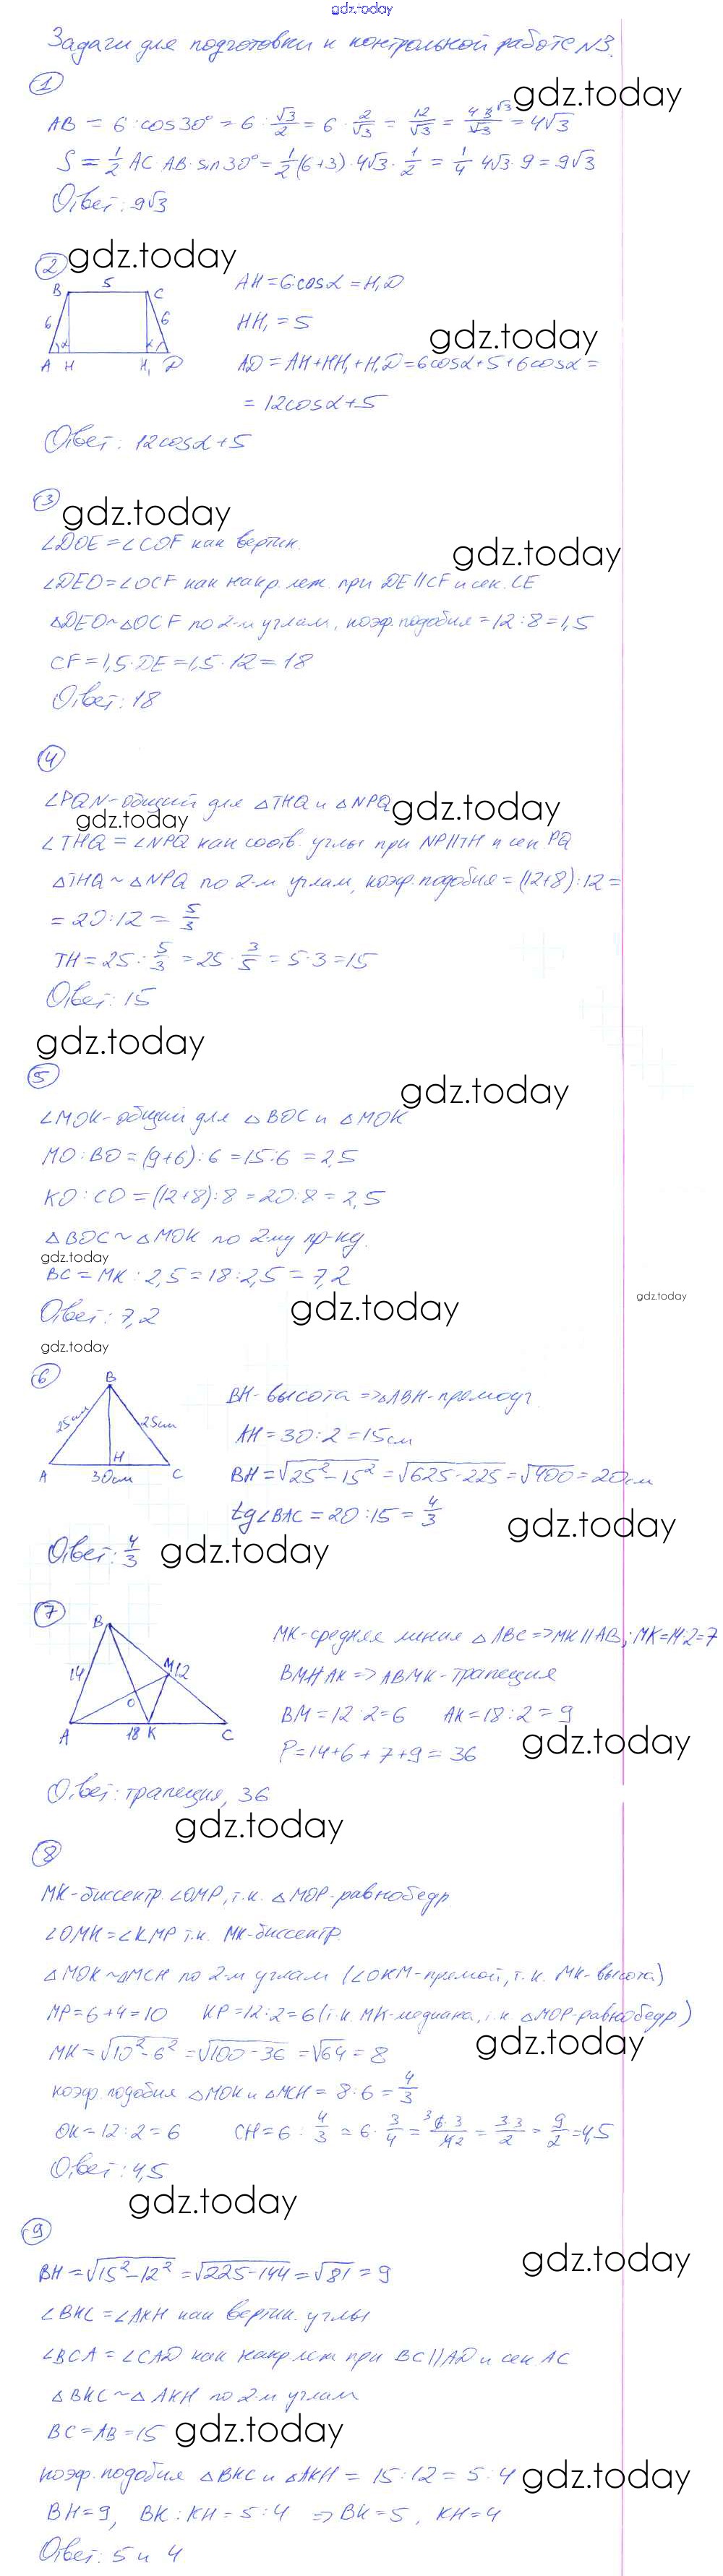 gdz.today
Задачи для подготовки к контрольной работе №3.
1
gdz.today
AB = 6 : cos30° = 6 : √3/2 = 6 · 2/√3 = 12/√3 = 4√3
S = 1/2 AC · AB · sin30° = 1/2 (6+3) · 4√3 · 1/2 = 1/4 4√3 · 9 = 9√3
Ответ: 9√3
2 gdz.today
B 5 C
6 6
α
A H H₁ D
AH = 6cosα = H₁D
HH₁ = 5
gdz.today
AD = AH + HH₁ + H₁D = 6cosα + 5 + 6cosα =
= 12cosα + 5
Ответ: 12cosα + 5
3 gdz.today
∠DOE = ∠COF как вертик.
gdz.today
∠DEO = ∠OCF как накр. леж. при DE∥CF и сек. CE
△DEO ~ △OCF по 2-м углам, коэф. подобия = 12 : 8 = 1,5
CF = 1,5 · DE = 1,5 · 12 = 18
Ответ: 18
4
∠PQN - общий для △THQ и △NPQ gdz.today
gdz.today
∠THQ = ∠NPQ как соотв. углы при NP∥TH и сек. PQ
△THQ ~ △NPQ по 2-м углам, коэф. подобия = (12+8) : 12 =
= 20 : 12 = 5/3
TH = 25 : 5/3 = 25 · 3/5 = 5 · 3 = 15
Ответ: 15
gdz.today
5
gdz.today
∠MOK - общий для △BOC и △MOK
MO : BO = (9+6) : 6 = 15 : 6 = 2,5
KO : CO = (12+8) : 8 = 20 : 8 = 2,5
△BOC ~ △MOK по 2-му пр-ку.
gdz.today
BC = MK : 2,5 = 18 : 2,5 = 7,2
gdz.today
Ответ: 7,2 gdz.today
gdz.today
6
B
25см 25см
H
A 30см C
BH - высота => △ABH - прямоуг.
AH = 30 : 2 = 15см
BH = √25² - 15² = √625 - 225 = √400 = 20см
tg∠BAC = 20 : 15 = 4/3
gdz.today
Ответ: 4/3 gdz.today
7
B
14 M 12
O
A 18 K C
MK - средняя линия △ABC => MK∥AB; MK = 14 : 2 = 7
BM∦AK => ABMK - трапеция
BM = 12 : 2 = 6 AK = 18 : 2 = 9
P = 14 + 6 + 7 + 9 = 36
gdz.today
Ответ: трапеция, 36
gdz.today
8
MK - биссектр. ∠OMP, т.к. △MOP - равнобедр.
∠OMK = ∠KMP т.к. MK - биссектр.
△MOK ~ △MCH по 2-м углам (∠OKM - прямой, т.к. MK - высота)
MP = 6 + 4 = 10 KP = 12 : 2 = 6 (т.к. MK - медиана, т.к. △MOP - равнобедр)
gdz.today
MK = √10² - 6² = √100 - 36 = √64 = 8
коэф. подобия △MOK и △MCH = 8 : 6 = 4/3
OK = 12 : 2 = 6 CH = 6 : 4/3 = 6 · 3/4 = 6·3/4 2 = 3·3/2 = 9/2 = 4,5
Ответ: 4,5
gdz.today
9
gdz.today
BH = √15² - 12² = √225 - 144 = √81 = 9
∠BKC = ∠AKH как вертик. углы
∠BCA = ∠CAD как накр леж при BC∥AD и сек AC
△BKC ~ △AKH по 2-м углам
BC = AB = 15 gdz.today
коэф. подобия △BKC и △AKH = 15 : 12 = 5 : 4 gdz.today
BH = 9, BK : KH = 5 : 4 => BK = 5, KH = 4
Ответ: 5 и 4